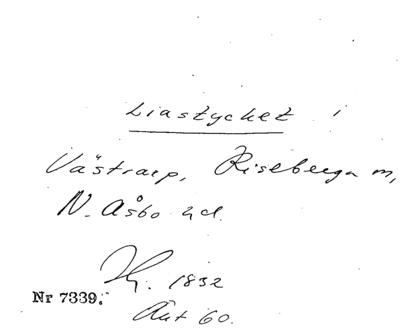 Liastycket i
Västrarp, Riseberga m,
N. Åsbo hd.
Hg. 1832
Nr 7339.
Akt 60.